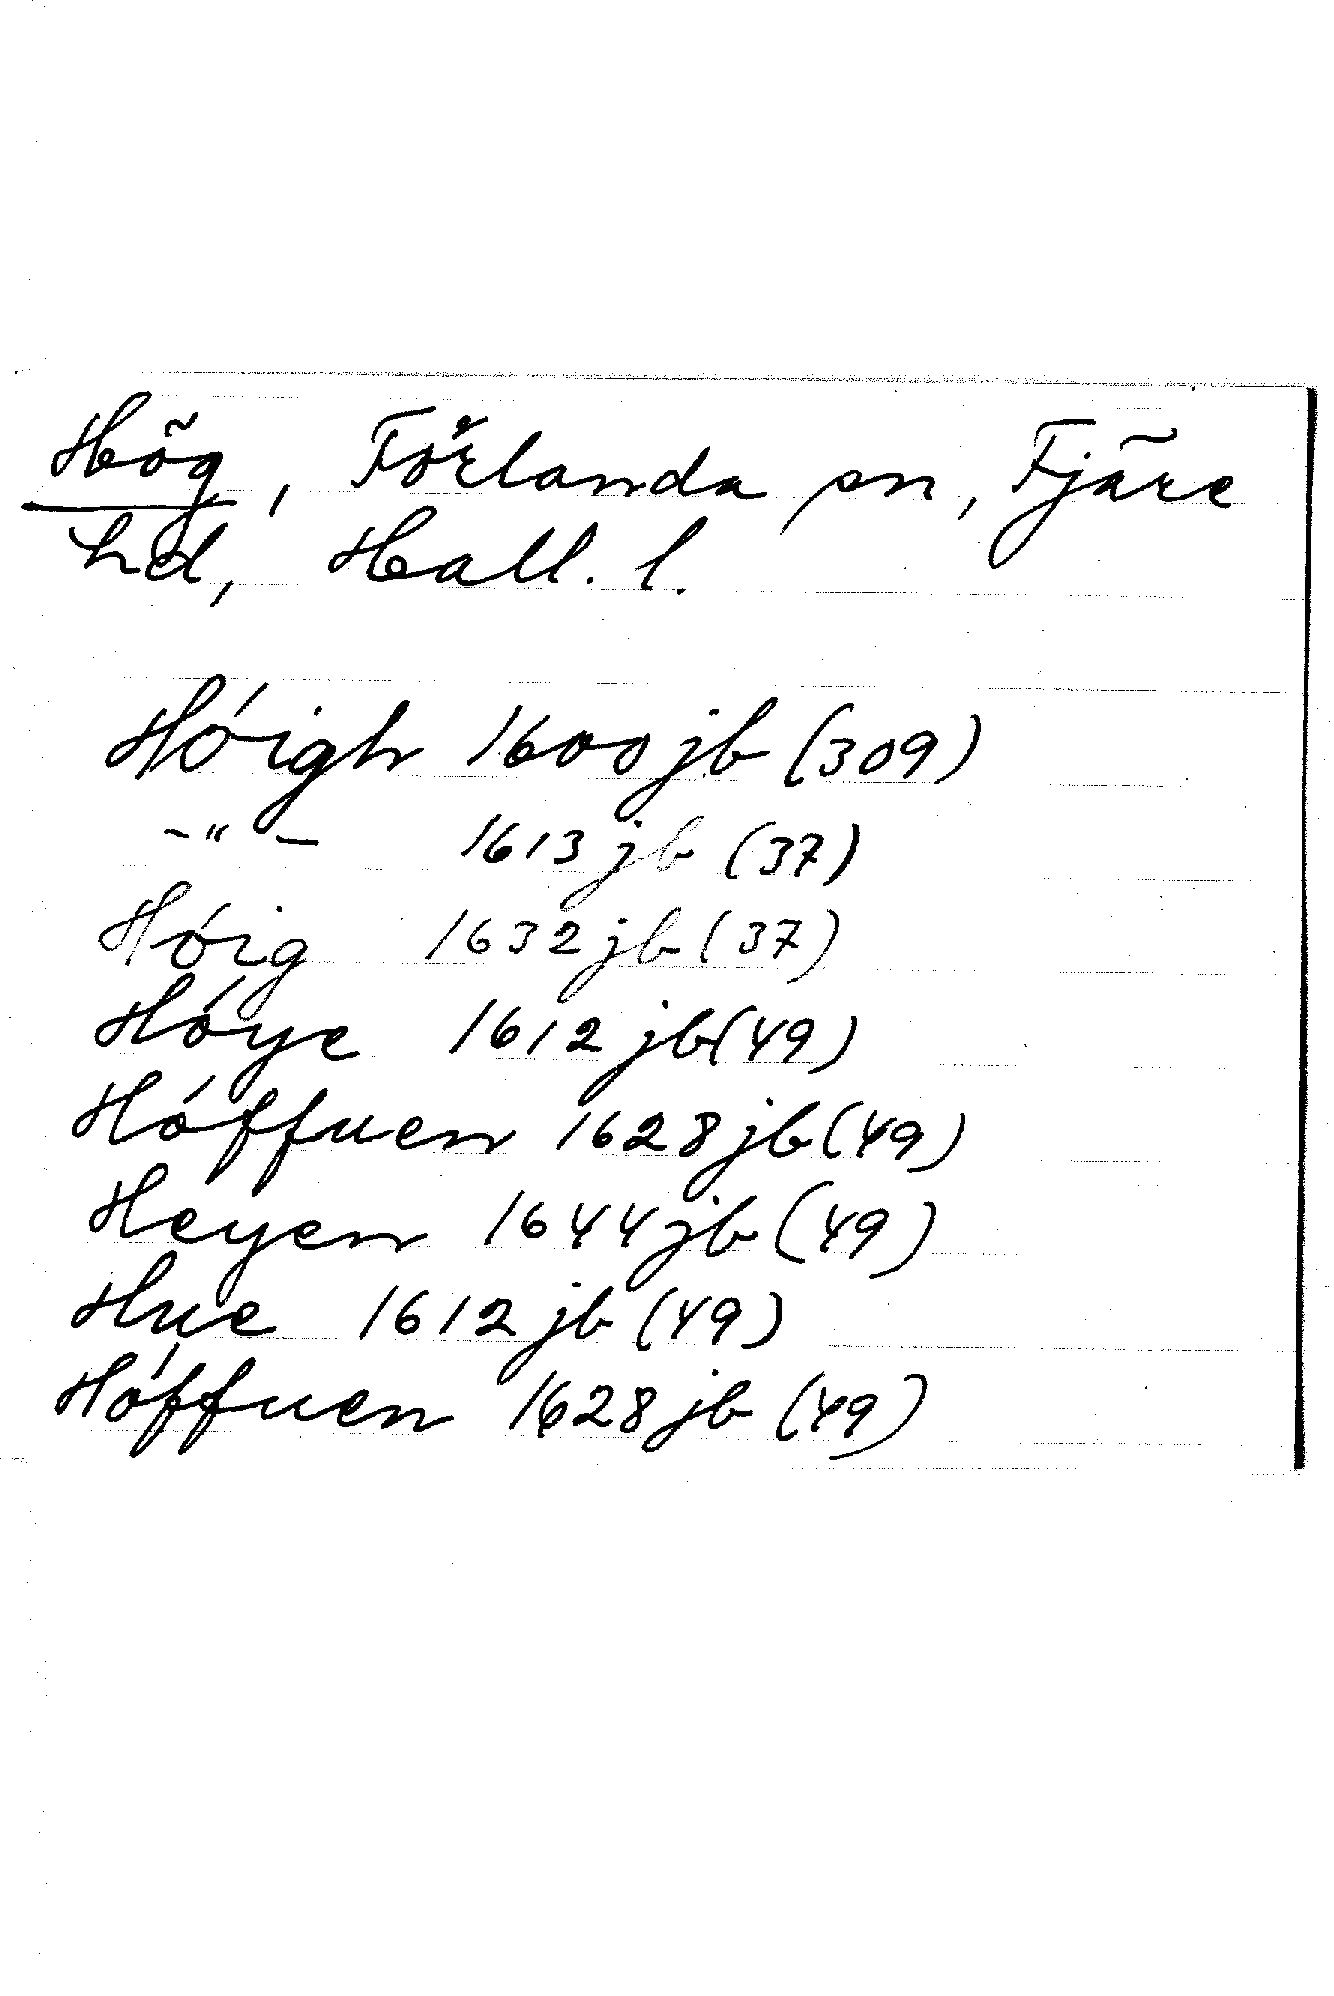 Hög, Förlanda sn, Fjäre
hd, Hall. l.
Hóigh 1600 jb (309)
-"- 1613 jb (37)
Hóig 1632 jb (37)
Hóye 1612 jb (49)
Hóffuen 1628 jb (49)
Heyen 1644 jb (49)
Hue 1612 jb (49)
Hóffuen 1628 jb (49)